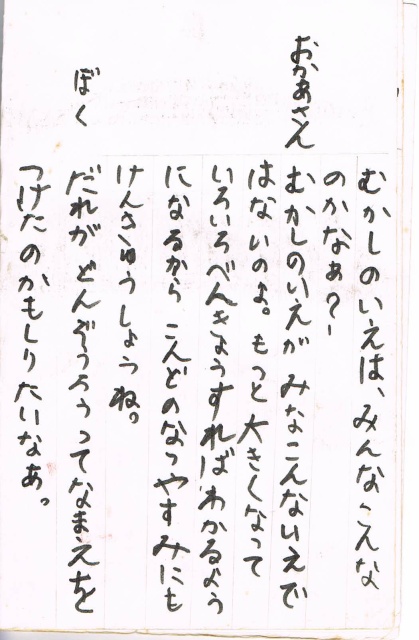 むかしのいえは、みんなこんな
のかなぁ？
おかあさん むかしのいえが みなこんないえで
はないのよ。もっと大きくなって
いろいろべんきょうすればわかるよう
になるから こんどのなつやすみにも
けんきゅうしょうね。
ぼく だれが どんぞうろうってなまえを
つけたのかもしりたいなあ。